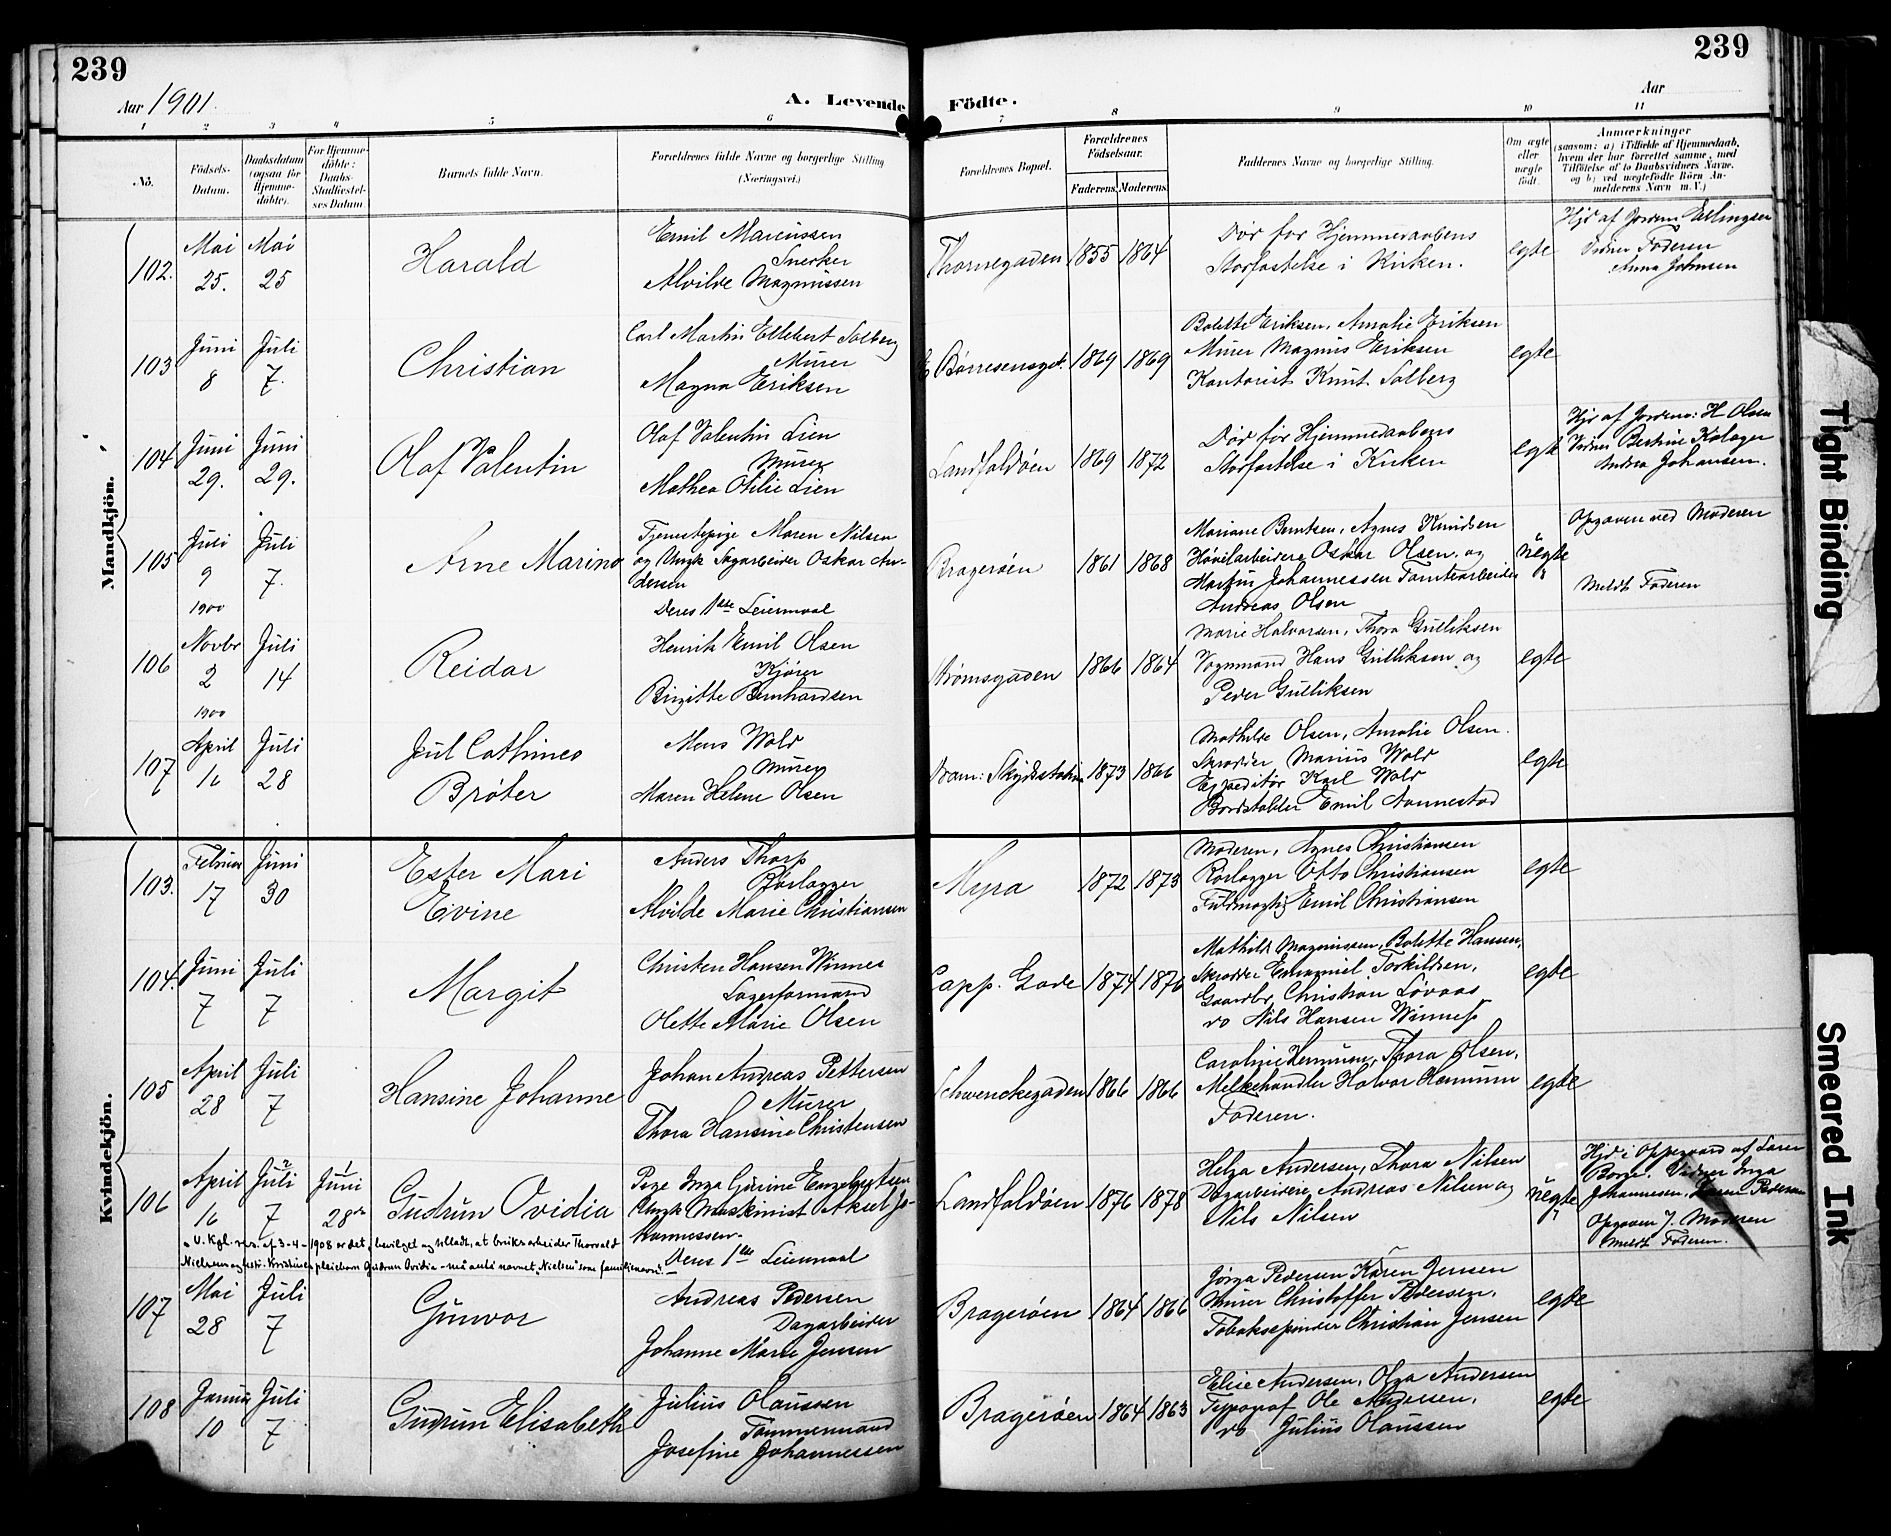 239
239
Aar 1901.
A. Levende
Födte.
Aar
1 2 3 4 5 6 7 8 9 10 11
No.
Födsels-
Datum.
Daabsdatum
(ogsaa for
Hjemme-
döbte).
For Hjemme-
döbte:
Daabs-
Stadfæstel-
ses Datum.
Barnets fulde Navn.
Forældrenes fulde Navne og borgerlige Stilling
(Næringsvei.)
Forældrenes Bopæl.
Forældrenes
Födselsaar.
Faderens. Moderens.
Faddernes Navne og borgerlige Stilling.
Om ægte
eller
uægte
född.
Anmærkninger
(saasom: a) i Tilfælde af Hjemmedaab,
hvem der har forrettet samme, med
Tilföielse af to Daabsvidners Navne,
og b) ved uægtefödte Börn An-
melderens Navn m. V.)
Mandkjön.
102.
Mai
25.
Mai
25
Harald
Emil Marcussen
Snerker
Alvilde Magnussen
Thornegaden
1855 1864
Död før Hjemmedaabens
Stadfæstelse i Kirken.
egte
Hjd af Jordm Ellingsen
Vidner Faderen
Anna Johnsen
103
Juni
8
Juli
7.
Christian
Carl Martin Ellebert Solberg
Murer
Magna Eriksen
Børresensgd.
1869 1869
Bolette Eriksen, Amalie Eriksen
Murer Magnus Eriksen
Kontorist Knut Solberg
egte
104
Juni
29.
Juni
29.
Olaf Valentin
Olaf Valentin Lien
Murer
Mathea Otilie Lien
Landfaldøen
1869 1872
Død før Hjemmedaabens
Stadfæstelse i Kirken
egte
Hjd af Jordm: H Olsen
Vidner Bertine Kolager
Andrea Johansen.
105
Juli
9
1900
Juli
7.
Arne Marino
Tjenestepige Maren Nilsen
og Ungk Sagarbeider Oskar An-
dersen
Deres 1ste Leiermaal
Bragerøen
1861 1868
Mariane Berntsen, Agnes Knudsen
Høvelarbeidere Oskar Olsen og
Martin Johannessen Tomtearbeider
Andreas Olsen
uegte
Opgaven ved Moderen
Meldt Faderen
106
Novbr
2
1900
Juli
14
Reidar
Henrik Emil Olsen
Kjører
Birgitte Bernhardsen
Strømsgaden
1866 1864
Marie Halvorsen, Thora Gulliksen
Vognmand Hans Gulliksen og
Peder Gulliksen
egte
107
April
16
Juli
28
Juul Cathinco
Brøter
Mons Wold
Murer
Maren Helene Olsen
Dram: Skydsstation
1873 1866
Mathilde Olsen, Amalie Olsen.
Skrædder Marius Wold
Expeditør Karl Wold
Bordstabler Emil Aannestad
egte
Kvindekjön.
103.
Februar
17
Juni
30
Ester Mari
Evine
Anders Thorp
Rørlægger
Alvilde Marie Christiansen
Myra
1872 1873
Moderen, Agnes Christiansen
Rørlægger Otto Christiansen
Fuldmægtig Emil Christiansen
egte
104.
Juni
7
Juli
7
Margit
Christen Hansen Winnes
Lagerformand
Olette Marie Olsen
Capp. Gade
1874 1876
Mathilde Magnussen, Bolette Hansen,
Skrædder Emanuel Torkildsen,
Gaardbr Christian Løvaas
do Nils Hansen Winnes
egte
105
April
28
Juli
7
Hansine Johanne
Johan Andreas Pettersen
Murer
Thora Hansine Christensen
Schwenckegaden
1866 1866
Caroline Hennum, Thora Olsen,
Melkehandler Halvor Hennum
Faderen.
egte
106
April
16
Juli 2
7
1
Juni
28de
Gudrun Ovidia
Pige Inga Gurine Engebretsen
Ungk Maskinist Aksel Jo-
hannessen.
Deres 1ste Leiermaal
Landfaldøen
1876 1878
Helga Andersen, Thora Nilsen
Dagarbeidere Andreas Nilsen og
Nils Nilsen
uegte
Hjd i Oppegaard af Lærer
Borge. Vidner Inga
Johannesen, Karen Pedersen
Opgaven f. Moderen
Meldt Faderen.
„V. Kgl. res. af 3-4-1908 er det „bevilget og tilladt, at bruksarbeider Thorvald
Nielsen og hustru Kristines pleiebarn Gudrun Ovidia – må anta navnet „Nielsen" som familienavn".
107
Mai
28
Juli
7
Gunvor
Andreas Pedersen
Dagarbeider
Johanne Marie Jensen
Bragerøen
1864 1866
Jørga Pedersen Karen Jensen
Murer Christoffer Pedersen,
Tobakspinder Christian Jensen
egte
108
Januar
10
Juli
7
Gudrun Elisabeth
Julius Olaussen
Tømmermand
Josefine Johannessen
Bragerøen
1864 1863
Elise Andersen, Olga Andersen
Typograf Ole Andersen,
do Julius Olaussen
egte
Tight Binding
Smeared Ink